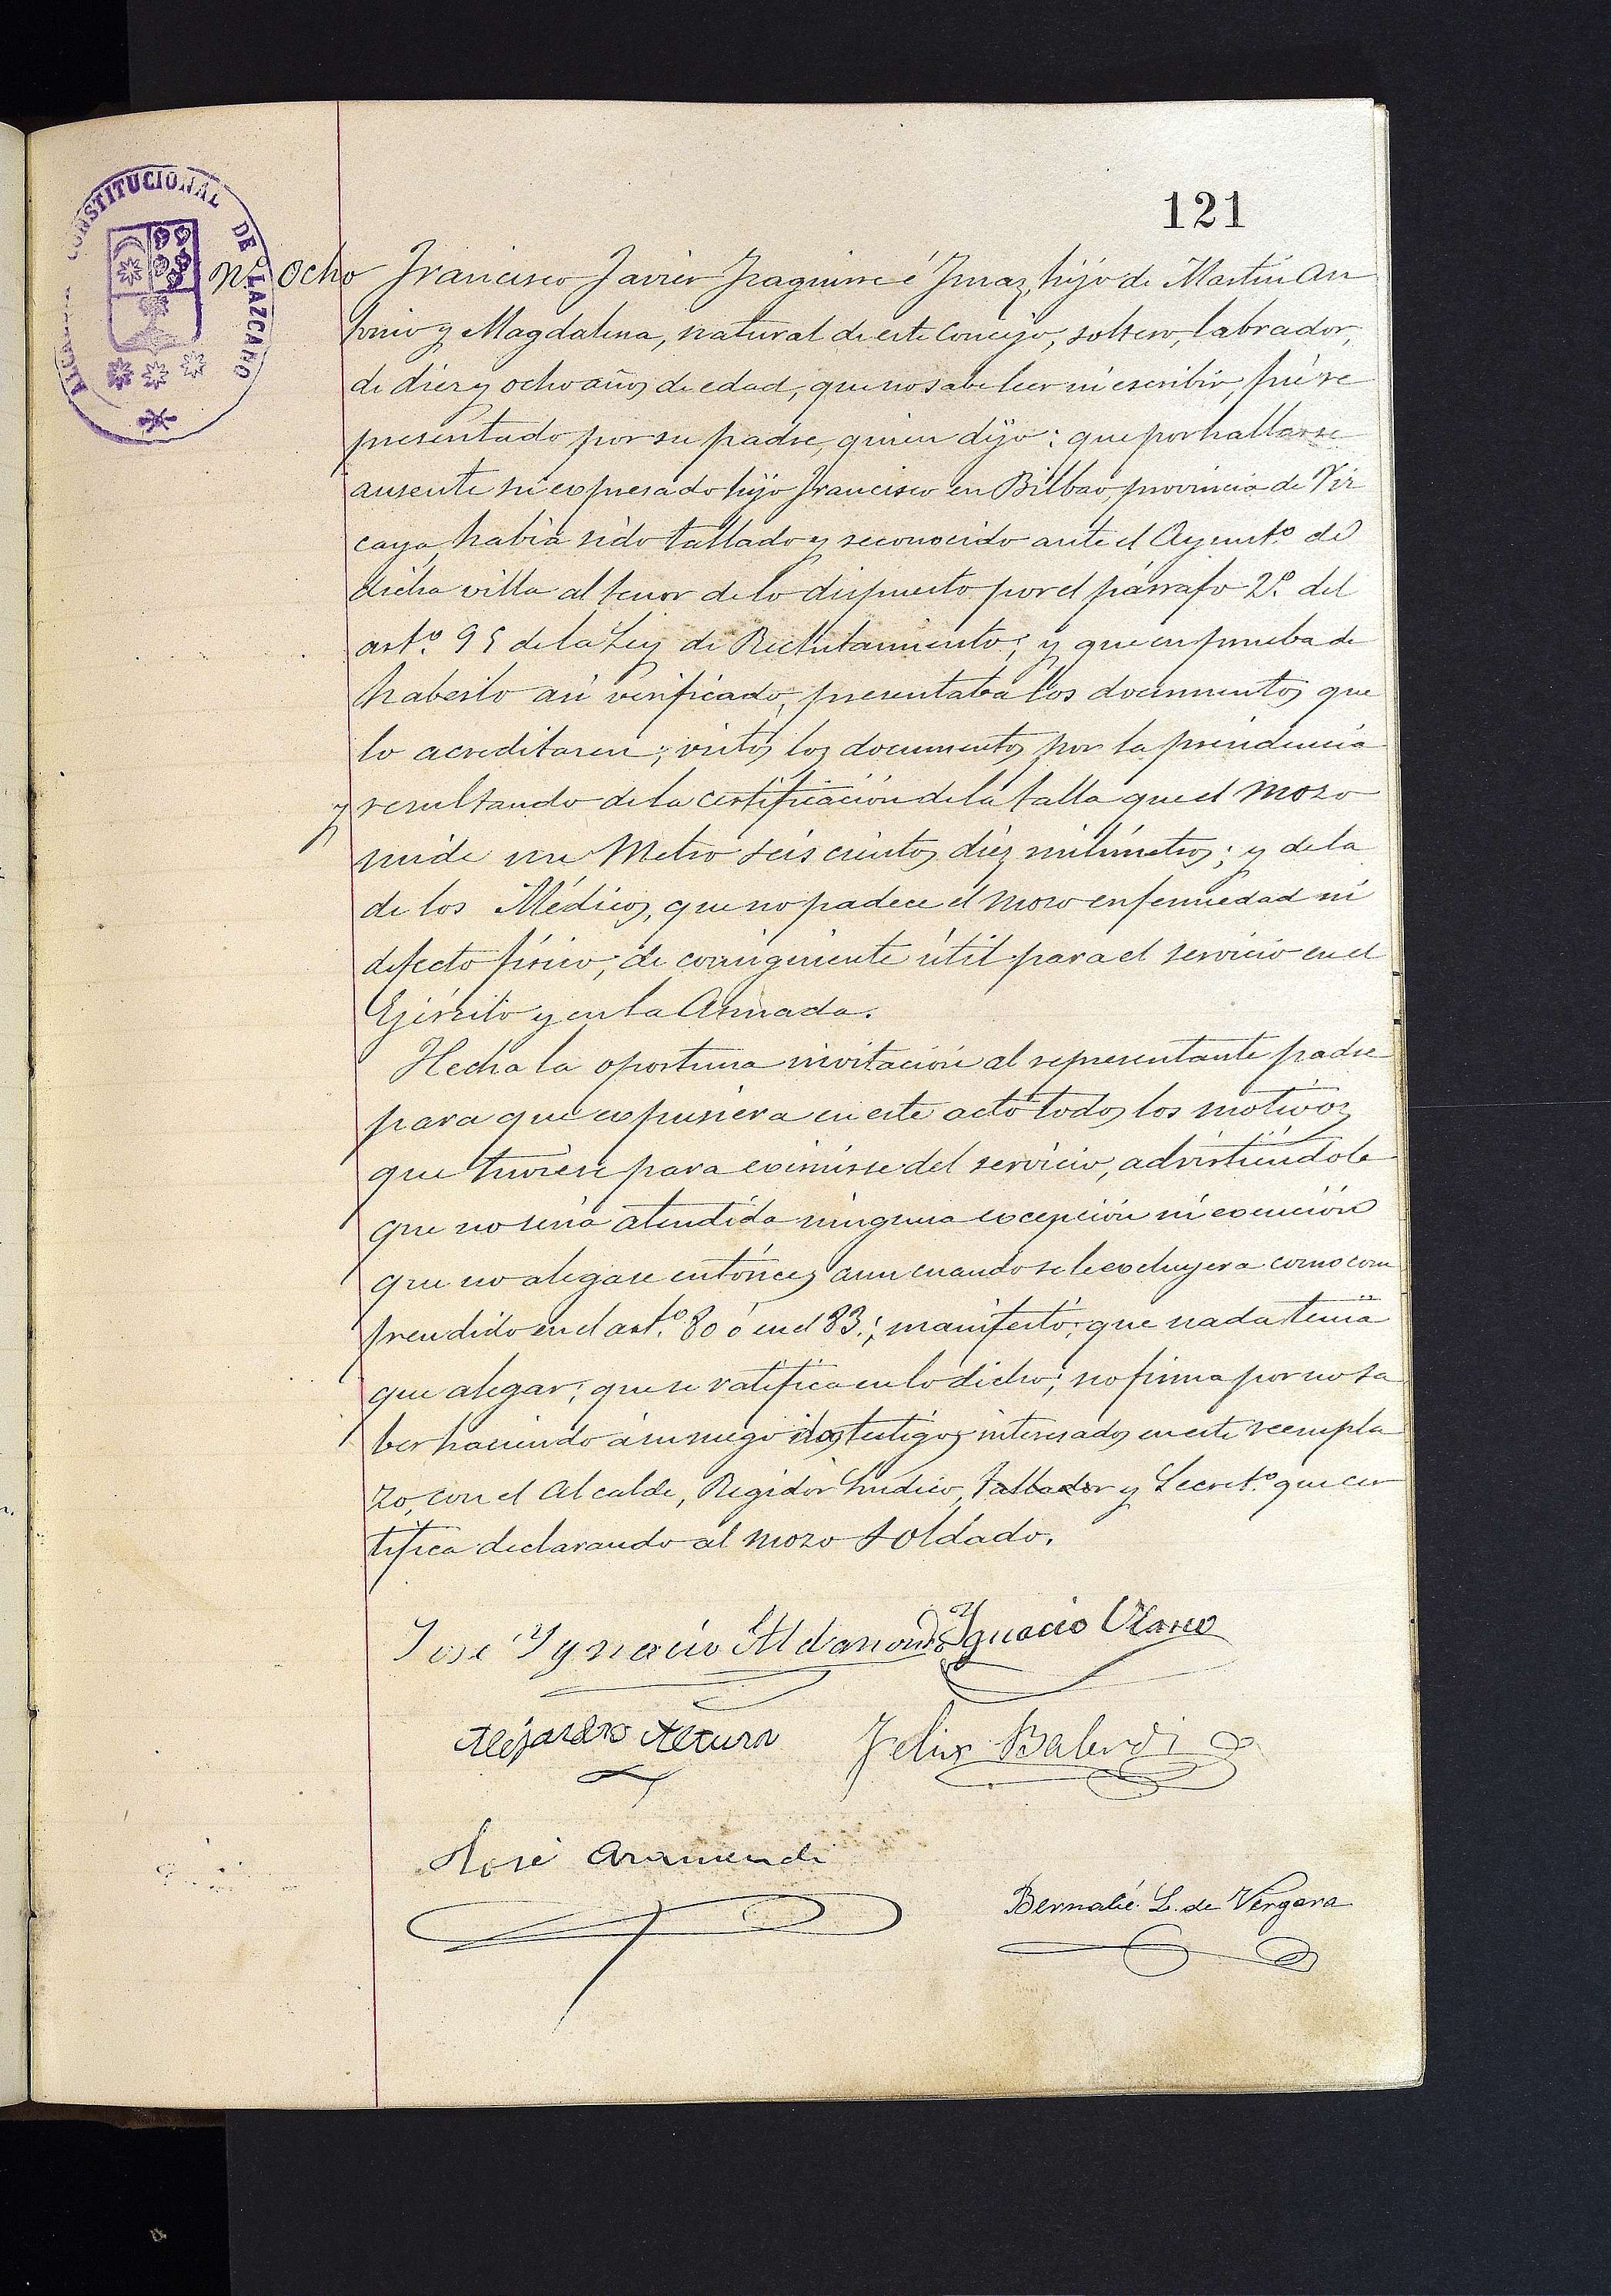 121
ALCALDIA CONSTITUCIONAL DE LAZCANO
Nº Ocho Francisco Javier Iraguirre é Imaz, hijo de Martin An
tonio y Magdalena, natural de este Concejo, soltero, labrador,
de diez y ocho años de edad, que no sabe leer ni escribir, fué re
presentado por su padre, quien dijo: que por hallarse
ausente su expresado hijo Francisco en Bilbao, provincia de Viz
caya, habia sido tallado y reconocido ante el Ayuntº de
dicha villa al tenor de lo dispuesto por el párrafo 2º del
artº 95 de la Ley de Reclutamiento; y que en prueba de
haberlo asi verificado, presentaba los documentos que
lo acreditaren; vistos los documentos por la presidencia
y resultando de la certificación de la talla que el mozo
mide un Metro seiscientos diez milimetros; y de la
de los Médicos, que no padece el mozo enfermedad ni
defecto fisico, de consiguiente útil para el servicio en el
Ejército y en la Armada.
Hecha la oportuna invitación al representante padre
para que expusiera en este acto todos los motivos
que tuviese para eximirse del servicio, advirtiéndole
que no seria atendida ninguna excepción ni exención
que no alegase entónces aun cuando se le excluyera como com
prendido en el artº 80 ó en el 83.; manifestó; que nada tenia
que alegar; que se ratifica en lo dicho; no firma por no sa
ber haciendo á su ruego dos testigos interesados en este reempla
zo, con el Alcalde, Regidor Sindico, tallador y Secretº que cer
tifica declarando al mozo Soldado.
José Ygnacio Aldanondo Ygnacio Olano
Alejandro Altuna Felix Balerdi
José Aramendi
Bernabé L. de Vergara